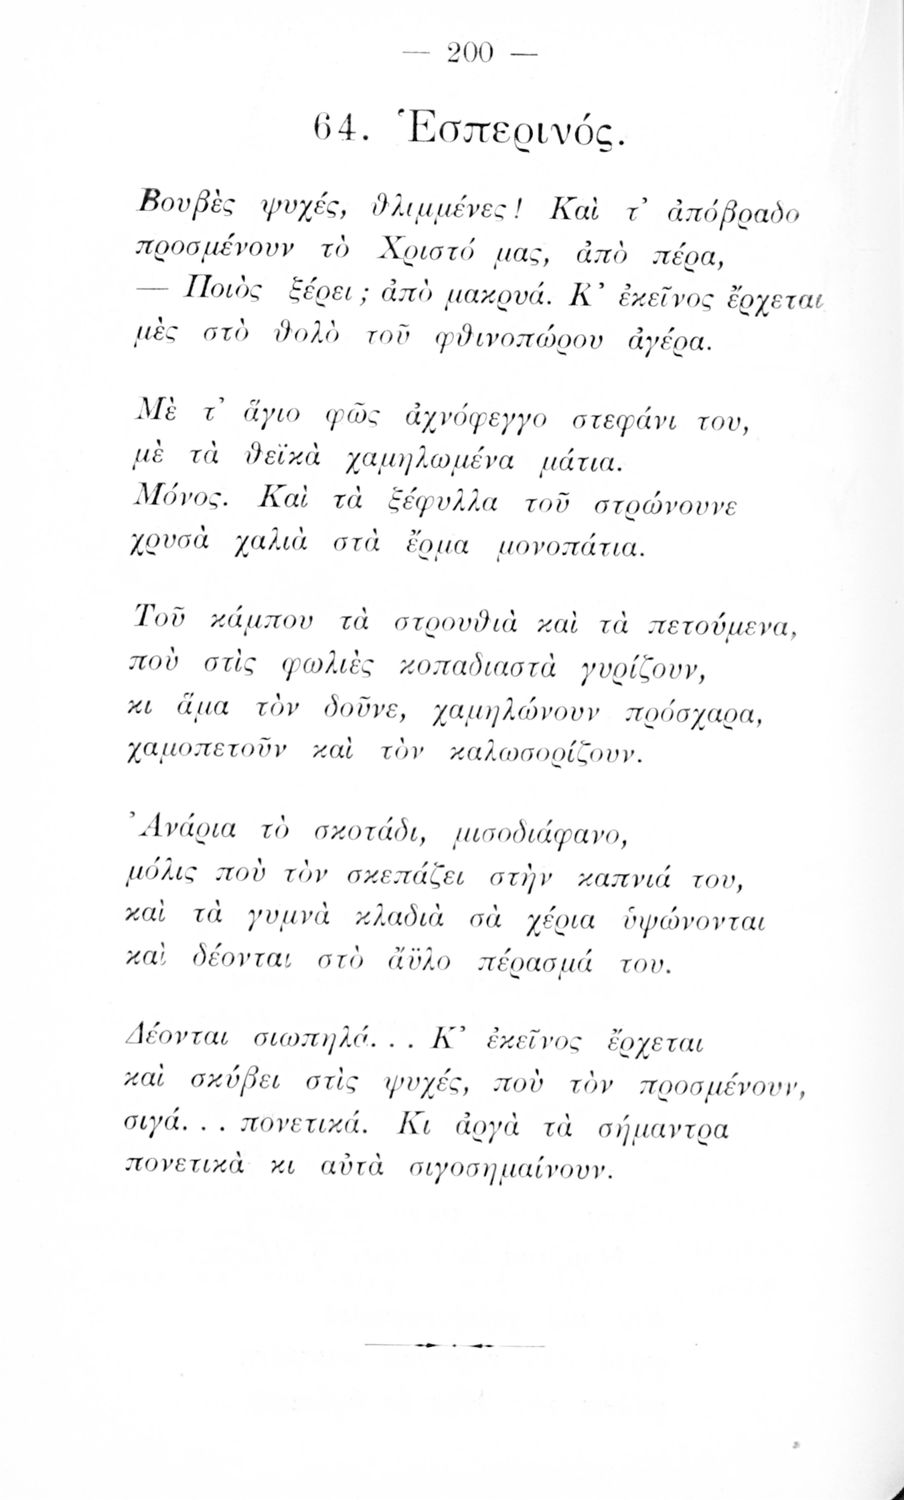 — 200 —
64. Ἑσπερινός.
Βουβὲς ψυχές, θλιμμένες! Καὶ τ’ ἀπόβραδο
προσμένουν τὸ Χριστό μας, ἀπὸ πέρα,
— Ποιὸς ξέρει; ἀπὸ μακρυά. Κ’ ἐκεῖνος ἔρχεται
μὲς στὸ θολὸ τοῦ φθινοπώρου ἀγέρα.
Μὲ τ’ ἅγιο φῶς ἀχνόφεγγο στεφάνι του,
μὲ τὰ θεϊκὰ χαμηλωμένα μάτια.
Μόνος. Καὶ τὰ ξέφυλλα τοῦ στρώνουνε
χρυσὰ χαλιὰ στὰ ἔρμα μονοπάτια.
Τοῦ κάμπου τὰ στρουθιὰ καὶ τὰ πετούμενα,
ποὺ στὶς φωλιὲς κοπαδιαστὰ γυρίζουν,
κι ἅμα τὸν δοῦνε, χαμηλώνουν πρόσχαρα,
χαμοπετοῦν καὶ τὸν καλωσορίζουν.
Ἀνάρια τὸ σκοτάδι, μισοδιάφανο,
μόλις ποὺ τὸν σκεπάζει στὴν καπνιά του,
καὶ τὰ γυμνὰ κλαδιὰ σὰ χέρια ὑψώνονται
καὶ δέονται στὸ ἄϋλο πέρασμά του.
Δέονται σιωπηλά. . . Κ’ ἐκεῖνος ἔρχεται
καὶ σκύβει στὶς ψυχές, ποὺ τὸν προσμένουν,
σιγά. . . πονετικά. Κι ἀργὰ τὰ σήμαντρα
πονετικὰ κι αὐτὰ σιγοσημαίνουν.